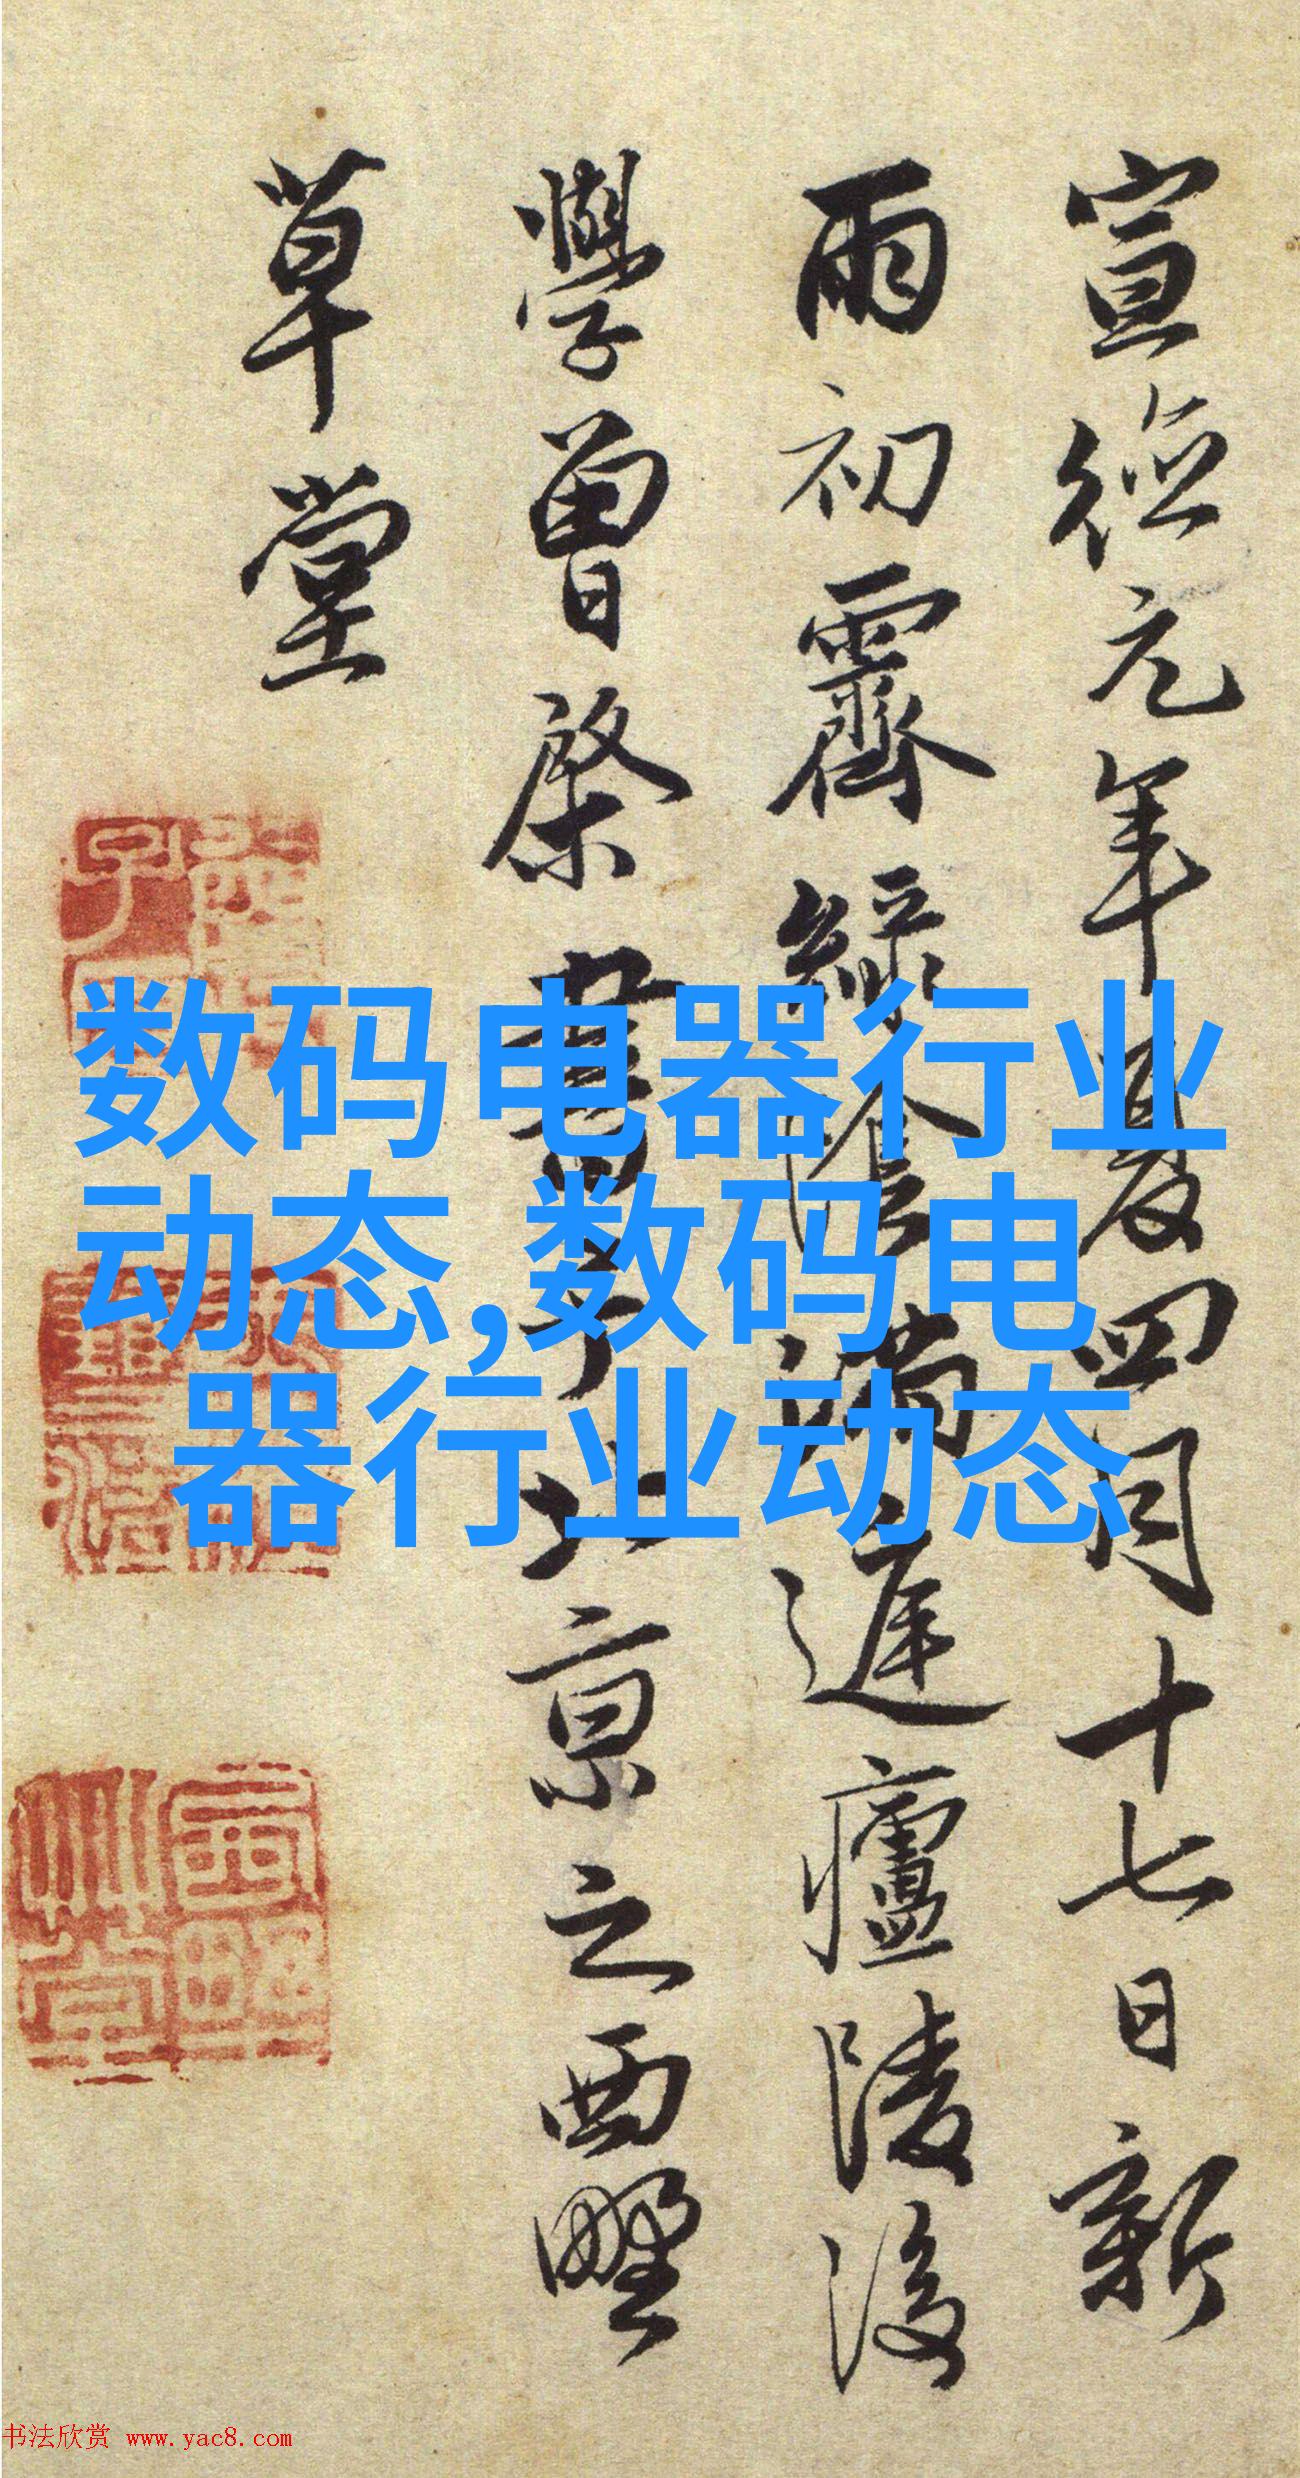 宣德元年夏四月十七日新
雨初霽綠陰滿遲廬陵後
學曾棨書于北京之西墅
草堂
数码电器行业
动态,数码电
器行业动态
书法欣赏 www.yac8.com